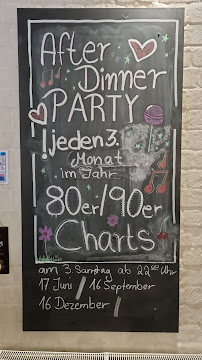 After
Dinner
PARTY
! jeden 3.
Monat
im Jahr
80er/90er
Charts
am 3. Samstag ab 22⁰⁰ Uhr
17 Juni / 16 September
16 Dezember /